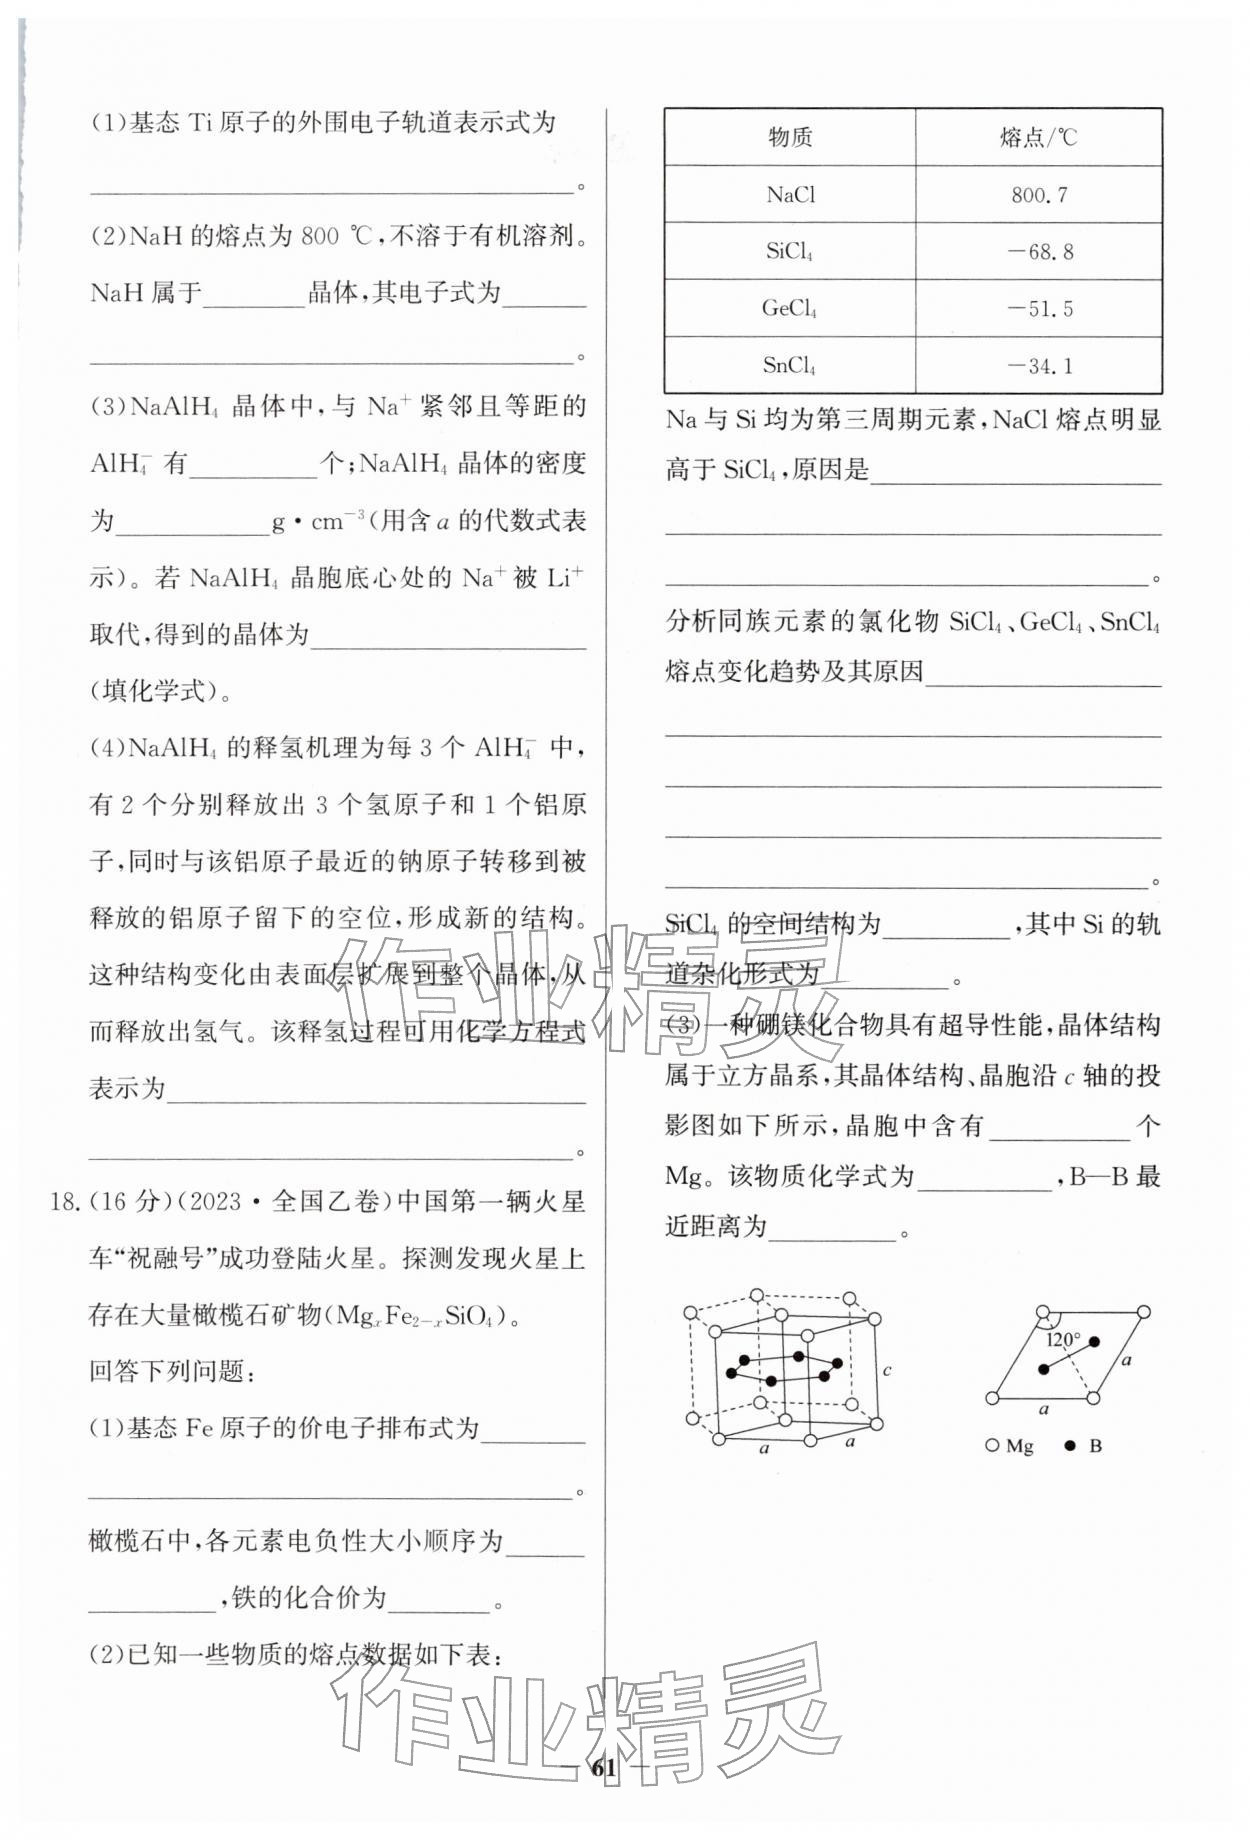 (1)基态 Ti 原子的外围电子轨道表示式为
。
(2)NaH 的熔点为 800 ℃,不溶于有机溶剂。
NaH 属于________晶体,其电子式为________
。
(3)NaAlH₄ 晶体中,与 Na⁺ 紧邻且等距的
AlH₄⁻ 有________个;NaAlH₄ 晶体的密度
为________g·cm⁻³(用含 a 的代数式表
示)。若 NaAlH₄ 晶胞底心处的 Na⁺ 被 Li⁺
取代,得到的晶体为________
(填化学式)。
(4)NaAlH₄ 的释氢机理为每 3 个 AlH₄⁻ 中,
有 2 个分别释放出 3 个氢原子和 1 个铝原
子,同时与该铝原子最近的钠原子转移到被
释放的铝原子留下的空位,形成新的结构。
这种结构变化由表面层扩展到整个晶体,从
而释放出氢气。该释氢过程可用化学方程式
表示为________
。
18.(16 分)(2023·全国乙卷)中国第一辆火星
车“祝融号”成功登陆火星。探测发现火星上
存在大量橄榄石矿物(MgₓFe₂₋ₓSiO₄)。
回答下列问题:
(1)基态 Fe 原子的价电子排布式为________
。
橄榄石中,各元素电负性大小顺序为________
________,铁的化合价为________。
(2)已知一些物质的熔点数据如下表:
物质 熔点/℃
NaCl 800.7
SiCl₄ −68.8
GeCl₄ −51.5
SnCl₄ −34.1
Na 与 Si 均为第三周期元素,NaCl 熔点明显
高于 SiCl₄,原因是________
。
分析同族元素的氯化物 SiCl₄、GeCl₄、SnCl₄
熔点变化趋势及其原因________
。
SiCl₄ 的空间结构为________,其中 Si 的轨
道杂化形式为________。
(3)一种硼镁化合物具有超导性能,晶体结构
属于立方晶系,其晶体结构、晶胞沿 c 轴的投
影图如下所示,晶胞中含有________个
Mg。该物质化学式为________,B—B 最
近距离为________。
c
a a
120°
a
a
Mg B
作业精灵
作业精灵
— 61 —